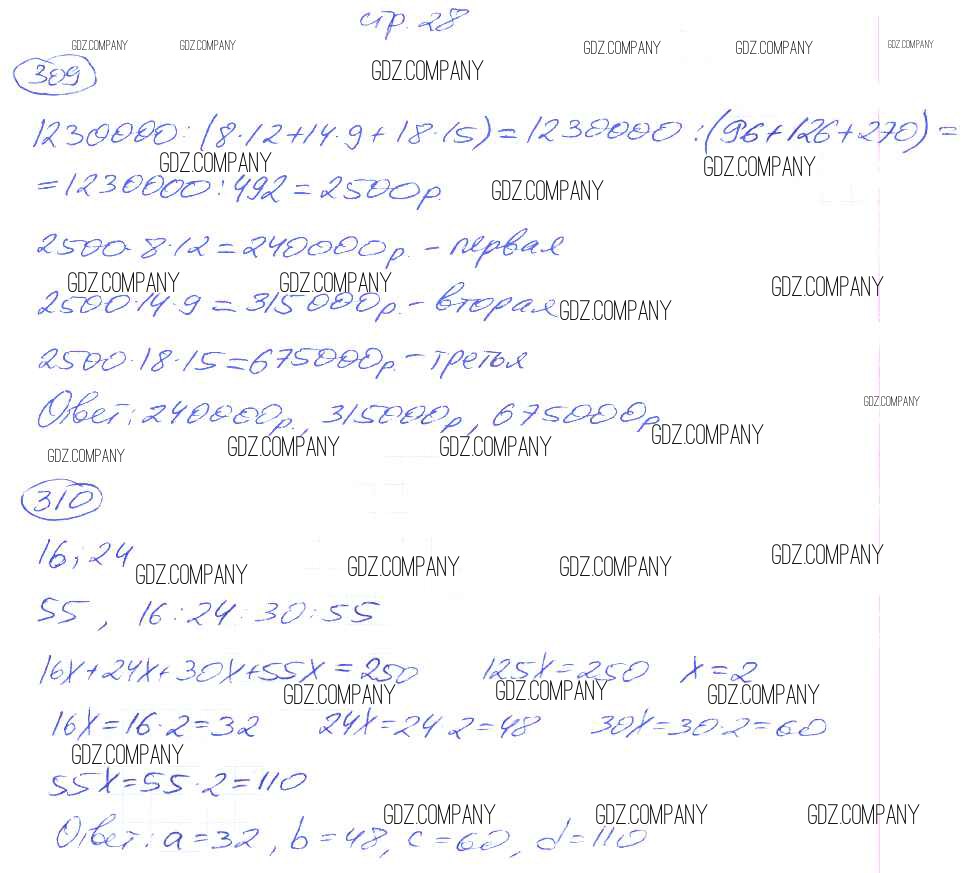 стр. 28
GDZ.COMPANY GDZ.COMPANY GDZ.COMPANY GDZ.COMPANY GDZ.COMPANY
309 GDZ.COMPANY
1230000:(8·12+14·9+18·15)=1230000:(96+126+270)=
GDZ.COMPANY GDZ.COMPANY
=1230000:492=2500р. GDZ.COMPANY
2500·8·12=240000р.-первая
GDZ.COMPANY GDZ.COMPANY GDZ.COMPANY
2500·14·9=315000р.-вторая GDZ.COMPANY
2500·18·15=675000р.-третья
GDZ.COMPANY
Ответ:240000р., 315000р, 675000р
GDZ.COMPANY GDZ.COMPANY GDZ.COMPANY GDZ.COMPANY
310
16;24 GDZ.COMPANY GDZ.COMPANY GDZ.COMPANY GDZ.COMPANY
55, 16:24:30:55
16x+24x+30x+55x=250 125x=250 x=2
GDZ.COMPANY GDZ.COMPANY GDZ.COMPANY
16x=16·2=32 24x=24·2=48 30x=30·2=60
GDZ.COMPANY
55x=55·2=110
GDZ.COMPANY GDZ.COMPANY GDZ.COMPANY
Ответ: a=32, b=48, c=60, d=110